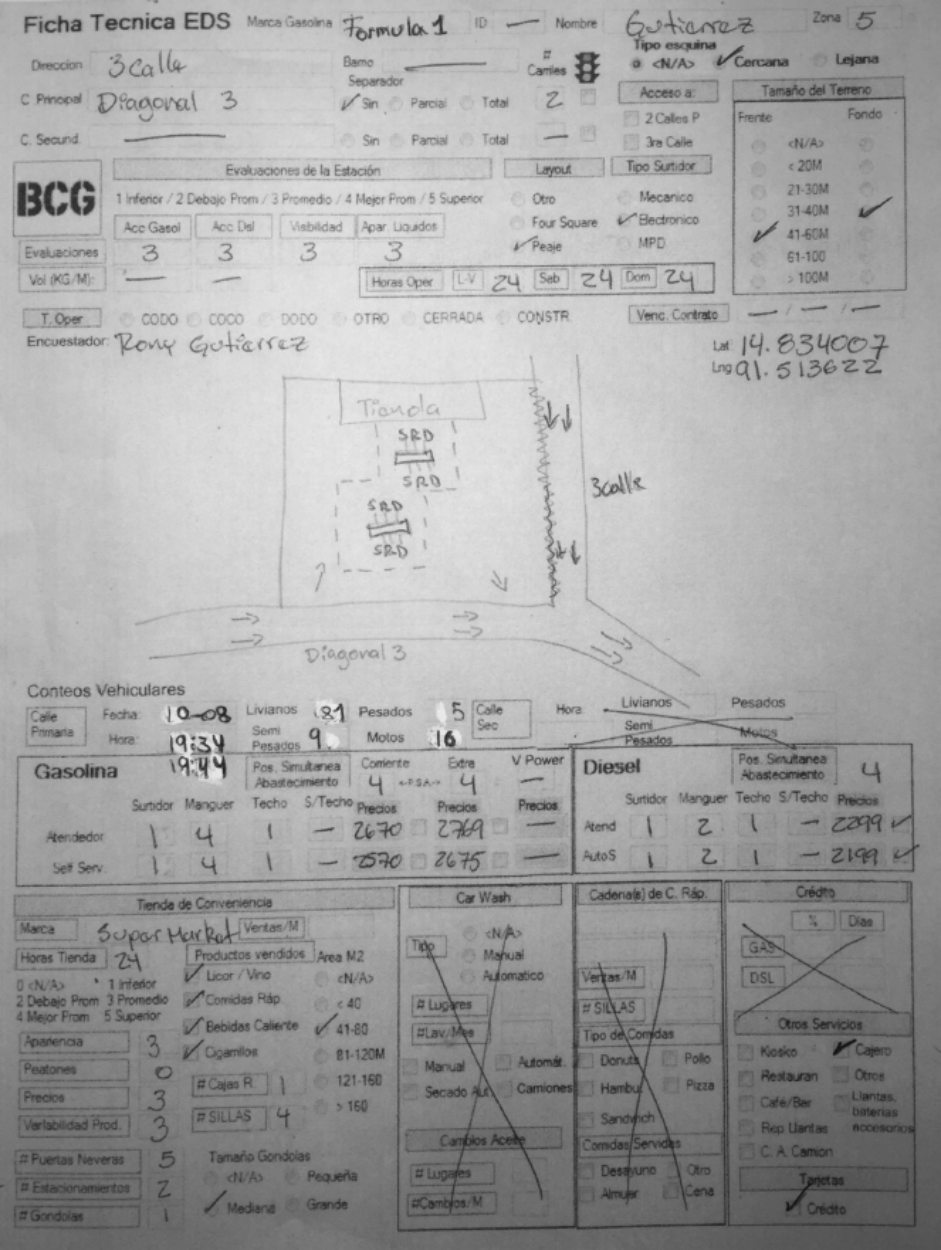 Ficha Tecnica EDS Marca Gasolina Formula 1 ID — Nombre Gutierrez Zona 5
Direccion 3 Calle Barrio — # Carriles Tipo esquina <N/A> Cercana Lejana
Separador
C Principal Diagonal 3 Sin Parcial Total 2 Acceso a: Tamaño del Terreno
C. Secund. — Sin Parcial Total — 2 Calles P Frente Fondo
3ra Calle <N/A>
BCG Evaluaciones de la Estación Layout Tipo Surtidor < 20M
1 Inferior / 2 Debajo Prom / 3 Promedio / 4 Mejor Prom / 5 Superior Otro Mecanico 21-30M
Acc Gasol Acc Dsl Visibilidad Apar. Liquidos Four Square Electronico 31-40M
Evaluaciones 3 3 3 3 Peaje MPD 41-60M
61-100
Vol (KG/M): — — Horas Oper L-V 24 Sab 24 Dom 24 > 100M
T. Oper CODO COCO DODO OTRO CERRADA CONSTR. Venc. Contrato — / — / —
Encuestador: Rony Gutierrez Lat 14.834007
Lng 91.513622
Tienda
SRD
SRD
3calle
SRD
SRD
Diagonal 3
Conteos Vehiculares
Calle Primaria Fecha: 10-08 Livianos 81 Pesados 5 Calle Sec Hora: Livianos Pesados
Hora: 19:34 Semi Pesados 9 Motos 16 Semi Pesados Motos
19:44
Gasolina Pos. Simultanea Abastecimiento Corriente 4 <-P.S.A-> Extra 4 V Power —
Diesel Pos. Simultanea Abastecimiento 4
Surtidor Manguer Techo S/Techo Precios Precios Precios Surtidor Manguer Techo S/Techo Precios
Atendedor 1 4 1 — 2670 2769 — Atend 1 2 1 — 2299
Self Serv. 1 4 1 — 2570 2675 — AutoS 1 2 1 — 2199
Tienda de Conveniencia
Marca Super Market Ventas/M
Horas Tienda 24 Productos vendidos Area M2
0 <N/A> 1 Inferior
2 Debajo Prom 3 Promedio
4 Mejor Prom 5 Superior
Licor / Vino <N/A>
Comidas Ráp. < 40
Bebidas Caliente 41-80
Cigarrillos 81-120M
121-160
> 160
Apariencia 3
Peatones 0
Precios 3
Variabilidad Prod. 3
# Cajas R. 1
# SILLAS 4
# Puertas Neveras 5
# Estacionamientos 2
# Gondolas 1
Tamaño Gondolas
<N/A> Pequeña
Mediana Grande
Car Wash
Tipo <N/A>
Manual
Automatico
# Lugares
#Lav/Mes
Manual Automát.
Secado Aut. Camiones
Cambios Aceite
# Lugares
#Cambios/M
Cadena(s) de C. Ráp.
Ventas/M
# SILLAS
Tipo de Comidas
Donuts Pollo
Hambu Pizza
Sandwich
Comidas Servidas
Desayuno Otro
Almuer Cena
Crédito
% Días
GAS
DSL
Otros Servicios
Kiosko Cajero
Restauran Otros
Café/Bar Llantas, baterias accesorios
Rep Llantas
C. A. Camion
Tarjetas
Crédito